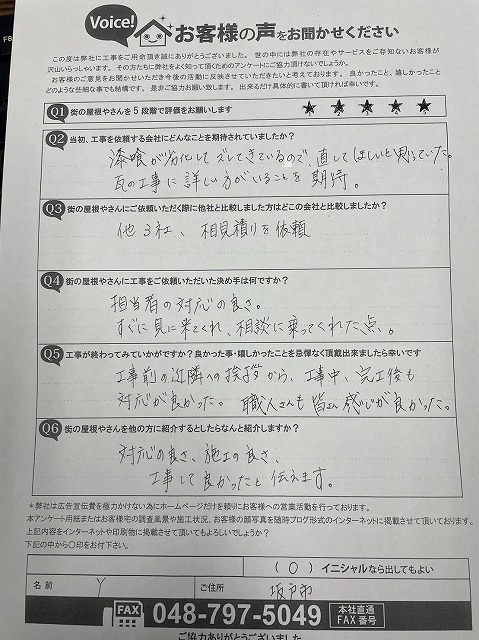 Voice! お客様の声をお聞かせください
この度は弊社に工事をご用命頂き誠にありがとうございました。世の中には弊社の存在やサービスをご存知ないお客様が
沢山いらっしゃいます。その方たちに弊社をよく知って頂くためのアンケートにご協力頂けないでしょうか。
お客様のご意見をお聞かせいただき今後の活動に反映させていただきたいと考えております。良かったこと、嬉しかったこと
どのような些細な事でも結構です。是非ご協力お願い致します。出来るだけ具体的に書いて頂ければ幸いです。
Q1 街の屋根やさんを5段階で評価をお願いします ★ ★ ★ ★ ★
Q2 当初、工事を依頼する会社にどんなことを期待されていましたか?
漆喰が劣化してズレてきているので、直してほしいと思っていた。
瓦の工事に詳しい方がいることを期待。
Q3 街の屋根やさんにご依頼いただく際に他社と比較しました方はどこの会社と比較しましたか?
他3社、相見積りを依頼
Q4 街の屋根やさんに工事をご依頼いただいた決め手は何ですか?
担当者の対応の良さ。
すぐに見に来てくれ、相談に乗ってくれた点。
Q5 工事が終わってみていかがですか?良かった事・嬉しかったことを忌憚なく頂戴出来ましたら幸いです
工事前の近隣への挨拶から、工事中、完工後も
対応が良かった。職人さんも皆さん感じが良かった。
Q6 街の屋根やさんを他の方に紹介するとしたらなんと紹介しますか?
対応の良さ、施工の良さ、
工事して良かったと伝えます。
*弊社は広告宣伝費を極力かけない為にホームページだけを頼りにお客様への営業活動を行っております。
本アンケート用紙またはお客様宅の調査風景や施工状況、お客様の顔写真を随時ブログ形式のインターネットに掲載させて頂いております。
上記内容をインターネットや印刷物に掲載させて頂いてもよろしいでしょうか?
下記の中から〇印をお付下さい。
(〇)イニシャルなら出してもよい
名前 Y ご住所 坂戸市
FAX 048-797-5049 本社直通 FAX番号
ご協力ありがとうございました